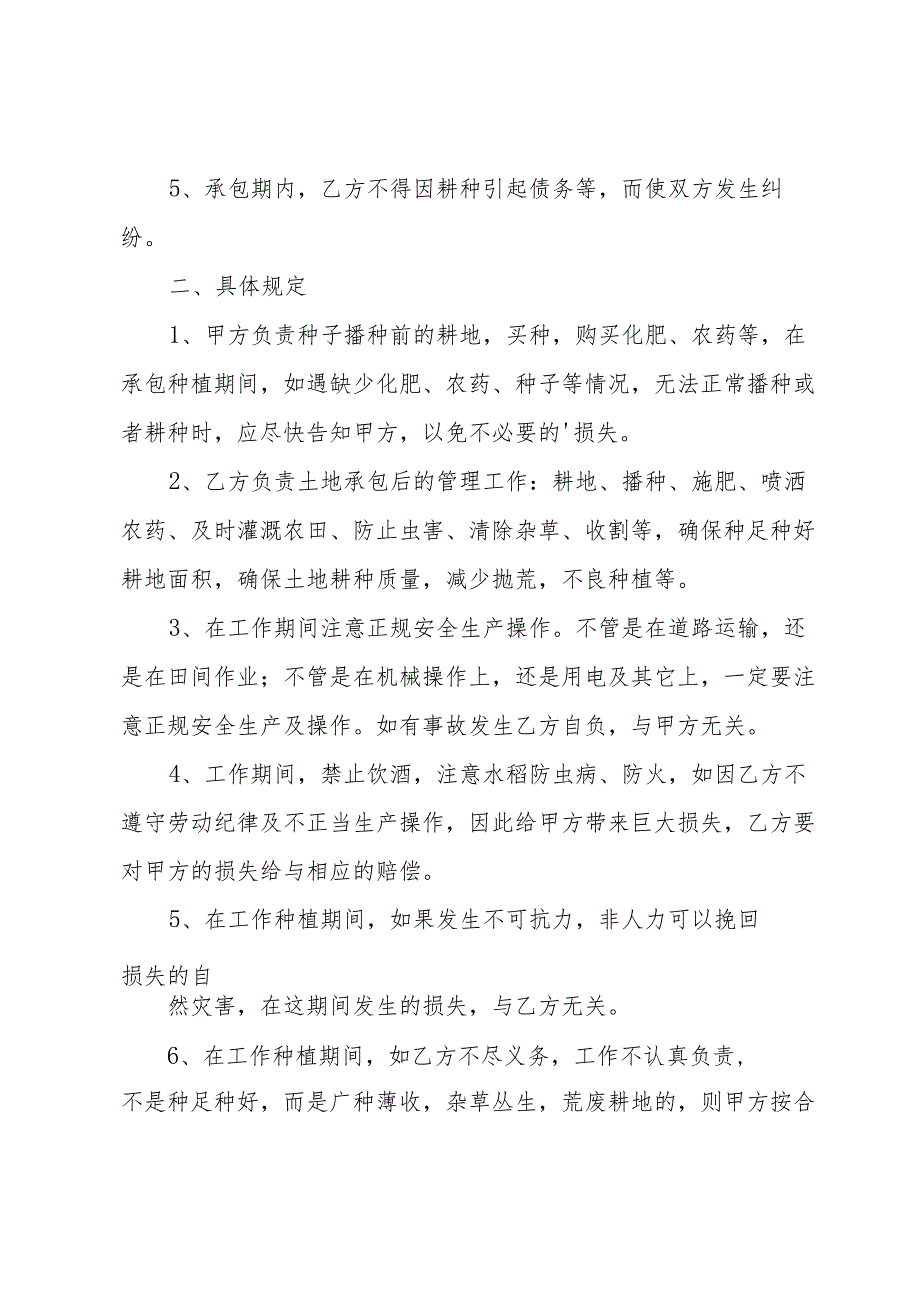 5、承包期内，乙方不得因耕种引起债务等，而使双方发生纠
纷。
二、具体规定
1、甲方负责种子播种前的耕地，买种，购买化肥、农药等，在
承包种植期间，如遇缺少化肥、农药、种子等情况，无法正常播种或
者耕种时，应尽快告知甲方，以免不必要的'损失。
2、乙方负责土地承包后的管理工作：耕地、播种、施肥、喷洒
农药、及时灌溉农田、防止虫害、清除杂草、收割等，确保种足种好
耕地面积，确保土地耕种质量，减少抛荒，不良种植等。
3、在工作期间注意正规安全生产操作。不管是在道路运输，还
是在田间作业；不管是在机械操作上，还是用电及其它上，一定要注
意正规安全生产及操作。如有事故发生乙方自负，与甲方无关。
4、工作期间，禁止饮酒，注意水稻防虫病、防火，如因乙方不
遵守劳动纪律及不正当生产操作，因此给甲方带来巨大损失，乙方要
对甲方的损失给与相应的赔偿。
5、在工作种植期间，如果发生不可抗力，非人力可以挽回
损失的自
然灾害，在这期间发生的损失，与乙方无关。
6、在工作种植期间，如乙方不尽义务，工作不认真负责，
不是种足种好，而是广种薄收，杂草丛生，荒废耕地的，则甲方按合